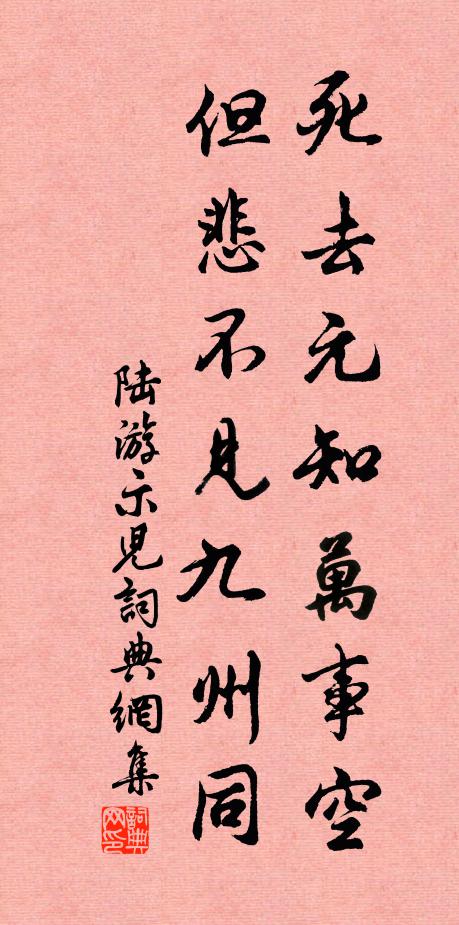 死去元知萬事空
但悲不見九州同
陆游示児詞典網集
詞典网印